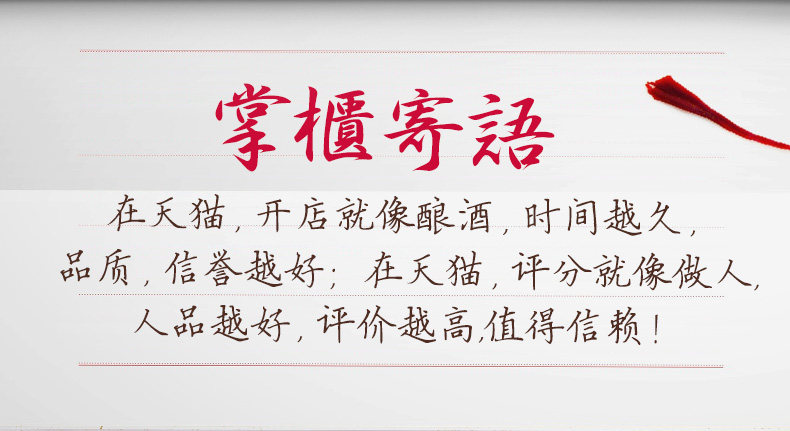 掌櫃寄語
在天猫,开店就像酿酒,时间越久,
品质,信誉越好;在天猫,评分就像做人,
人品越好,评价越高,值得信赖!